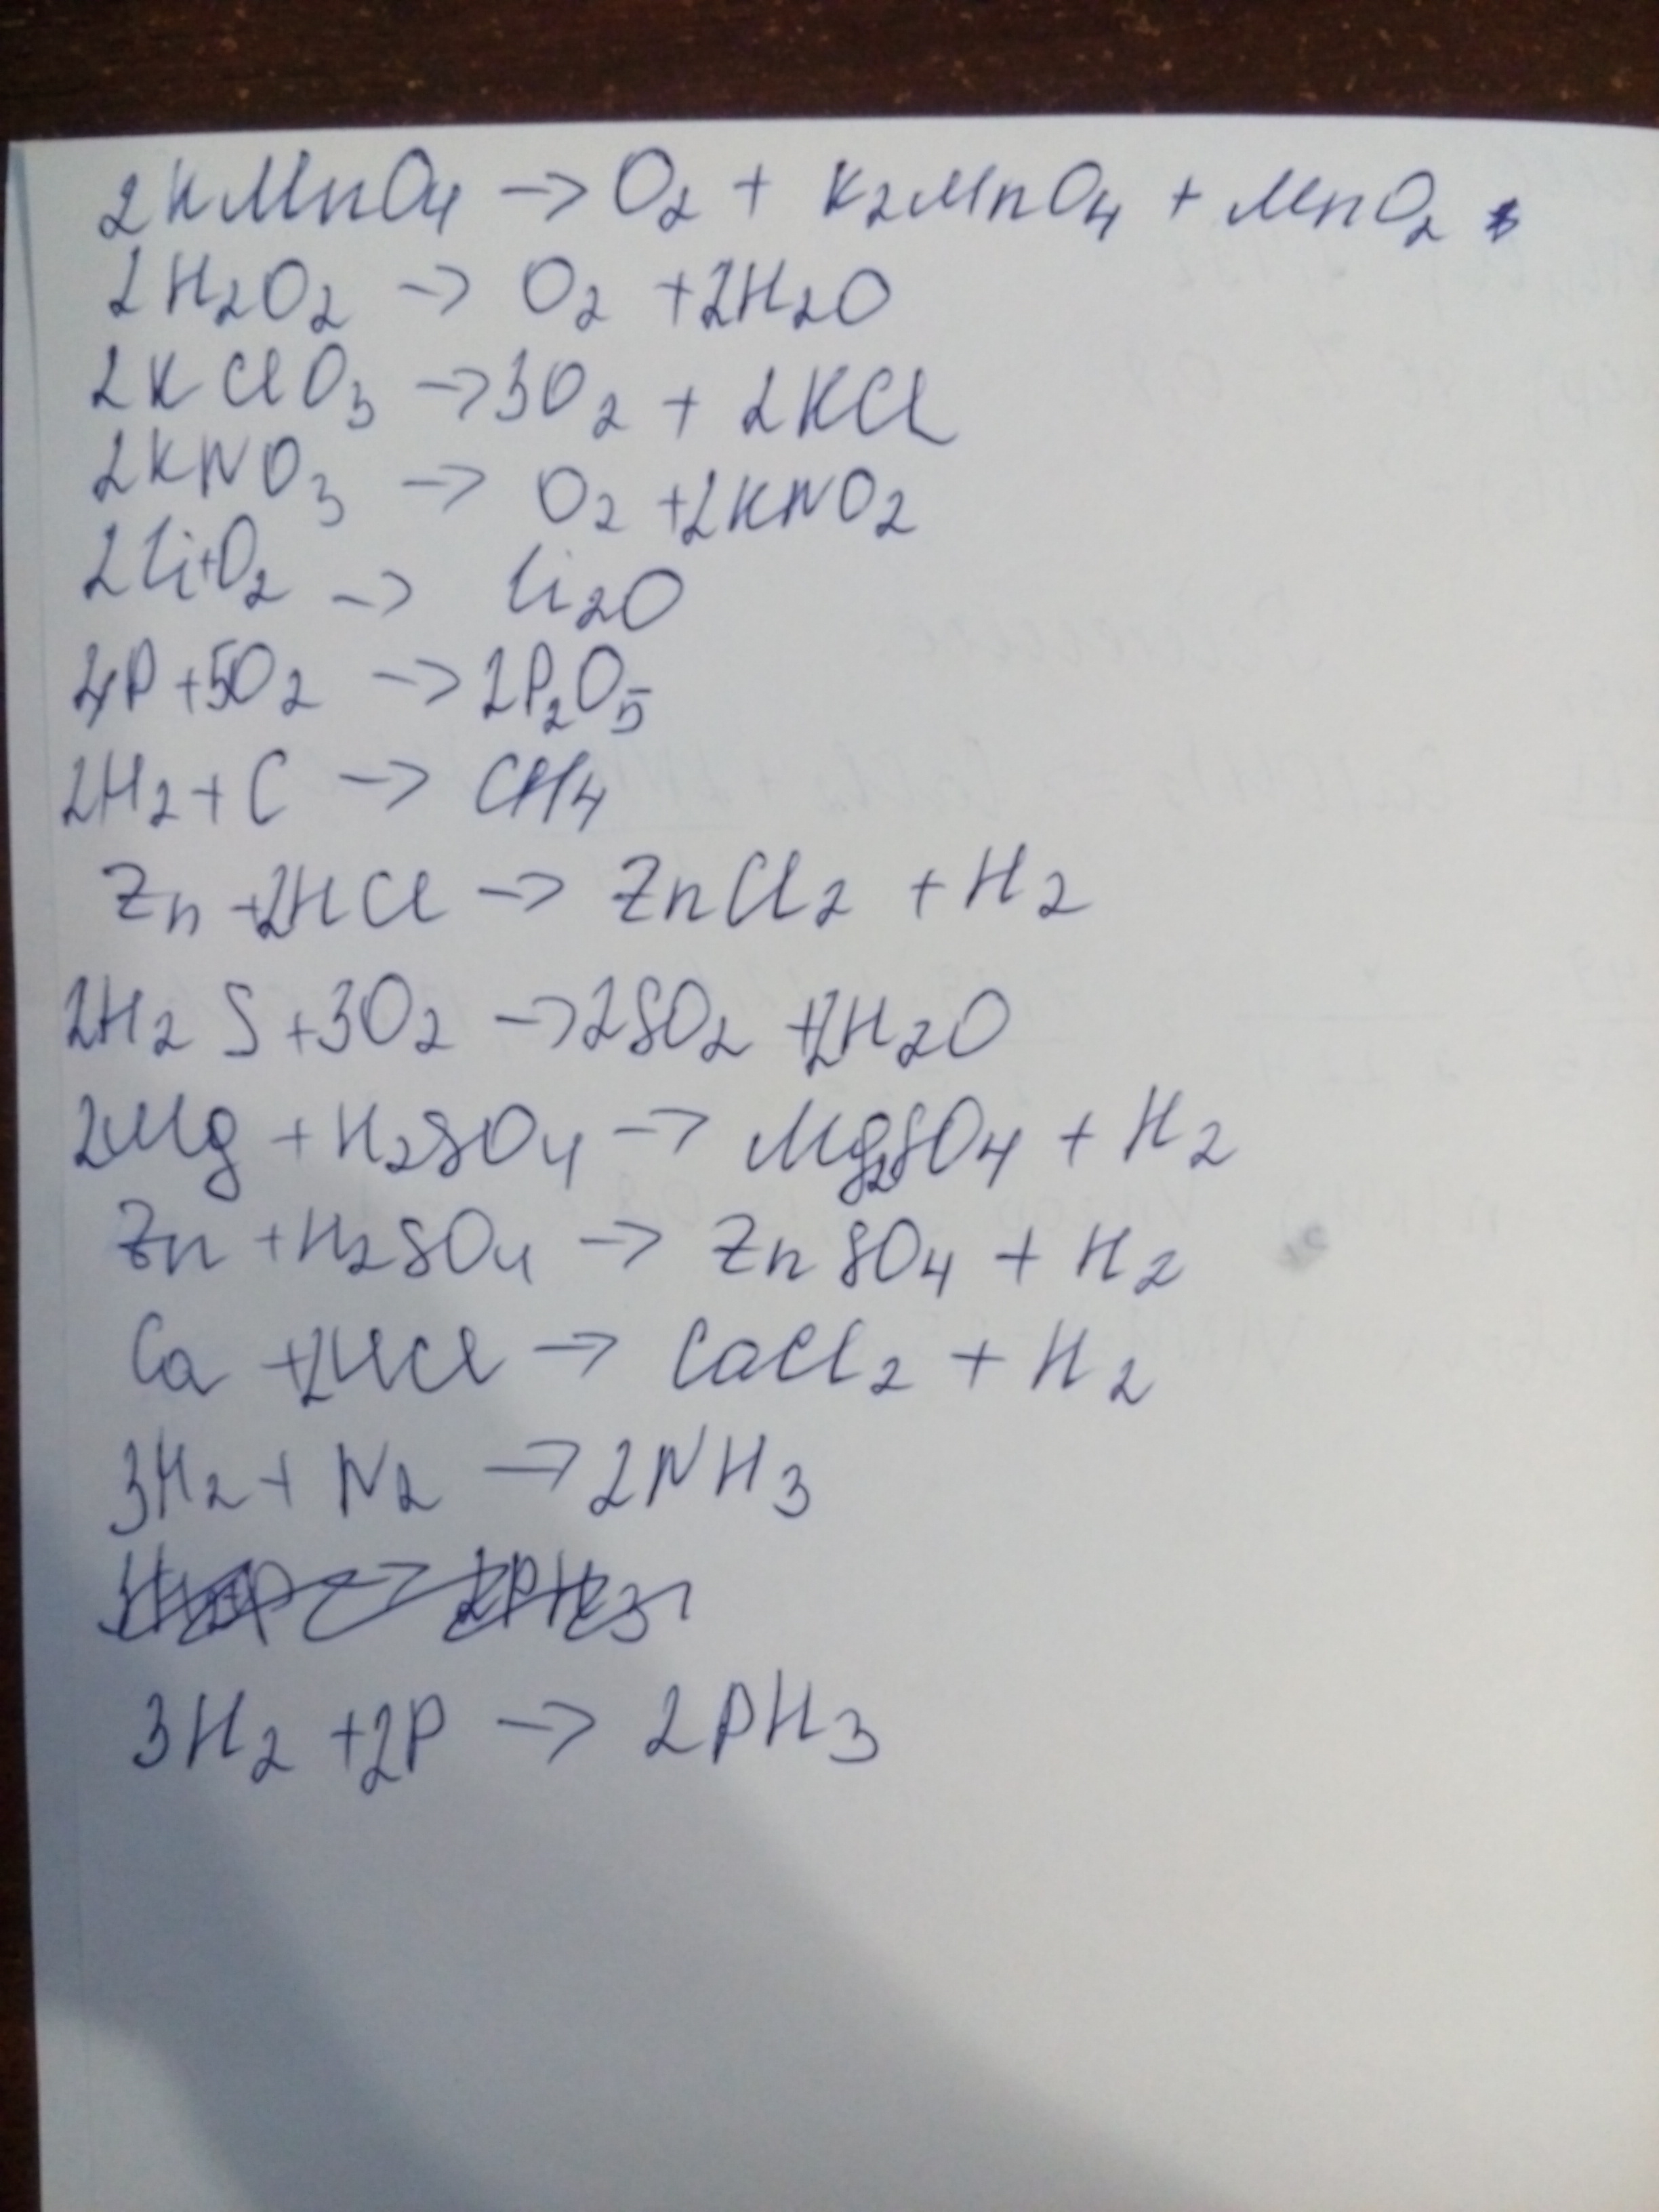 2KMnO4 → O2 + K2MnO4 + MnO2
2H2O2 → O2 + 2H2O
2KClO3 → 3O2 + 2KCl
2KNO3 → O2 + 2KNO2
2Li+O2 → Li2O
4P + 5O2 → 2P2O5
2H2 + C → CH4
Zn + 2HCl → ZnCl2 + H2
2H2S + 3O2 → 2SO2 + 2H2O
2Mg + H2SO4 → Mg2SO4 + H2
Zn + H2SO4 → ZnSO4 + H2
Ca + 2HCl → CaCl2 + H2
3H2 + N2 → 2NH3
3H2 + 2P → 2PH3